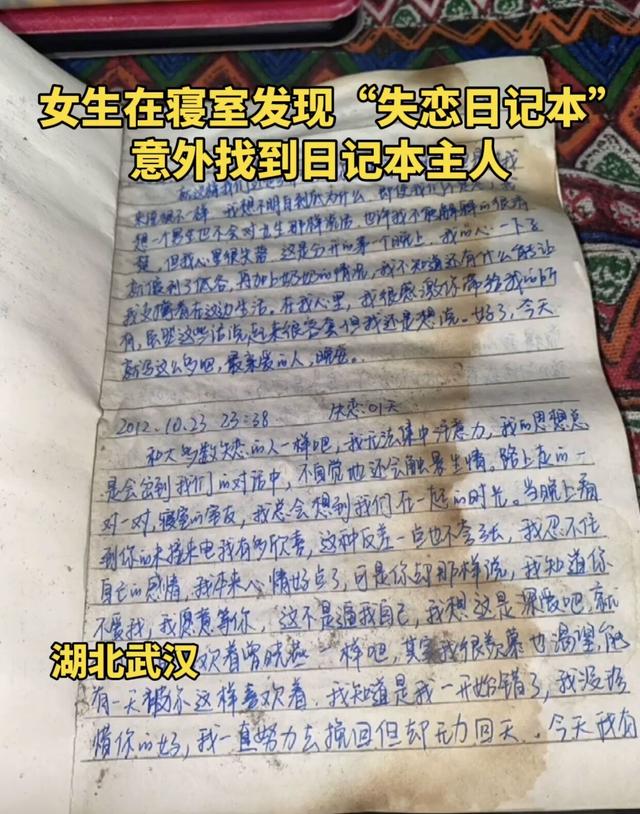 女生在寝室发现“失恋日记本”
意外找到日记本主人
来没想不一样，我想不明白到底为什么，即使我们
想一个男生也不会对女生那样说话，也许我不能解释的很清
楚，但我心里很失落，这是分开的第一个晚上，我的心一下子
就偃到了低谷，再加上奶奶的情况，我不知道还有什么能让
我支撑着在这边生活。在我心里，我很感激你带给我的所
有，虽然这些话说起来很客套但我还是想说。好了，今天
就写这么多吧，最亲爱的人，晚安。
2012.10.23 23:38 失恋:01天
和大多数失恋的人一样吧，我无法集中注意力，我的思想总
是会岔到我们的对话中，不自觉地还会触景生情。路上走的一
对一对，寝室的室友，我总会想到我们在一起的时光。当晚上看
到你的未接来电我有多欣喜，这种反差一点也不夸张，我忍不住
自己的感情，我本来心情好点了，可是你却那样说，我知道你
不爱我，我愿意等你，这不是逼我自己，我想这是深爱吧，就
欢着曾晓燕一样吧，其实我很羡慕也渴望能
湖北武汉
有一天被你这样喜欢着，我知道是我一开始错了，我没珍
惜你的好，我一直努力去挽回但却无力回天。今天我有